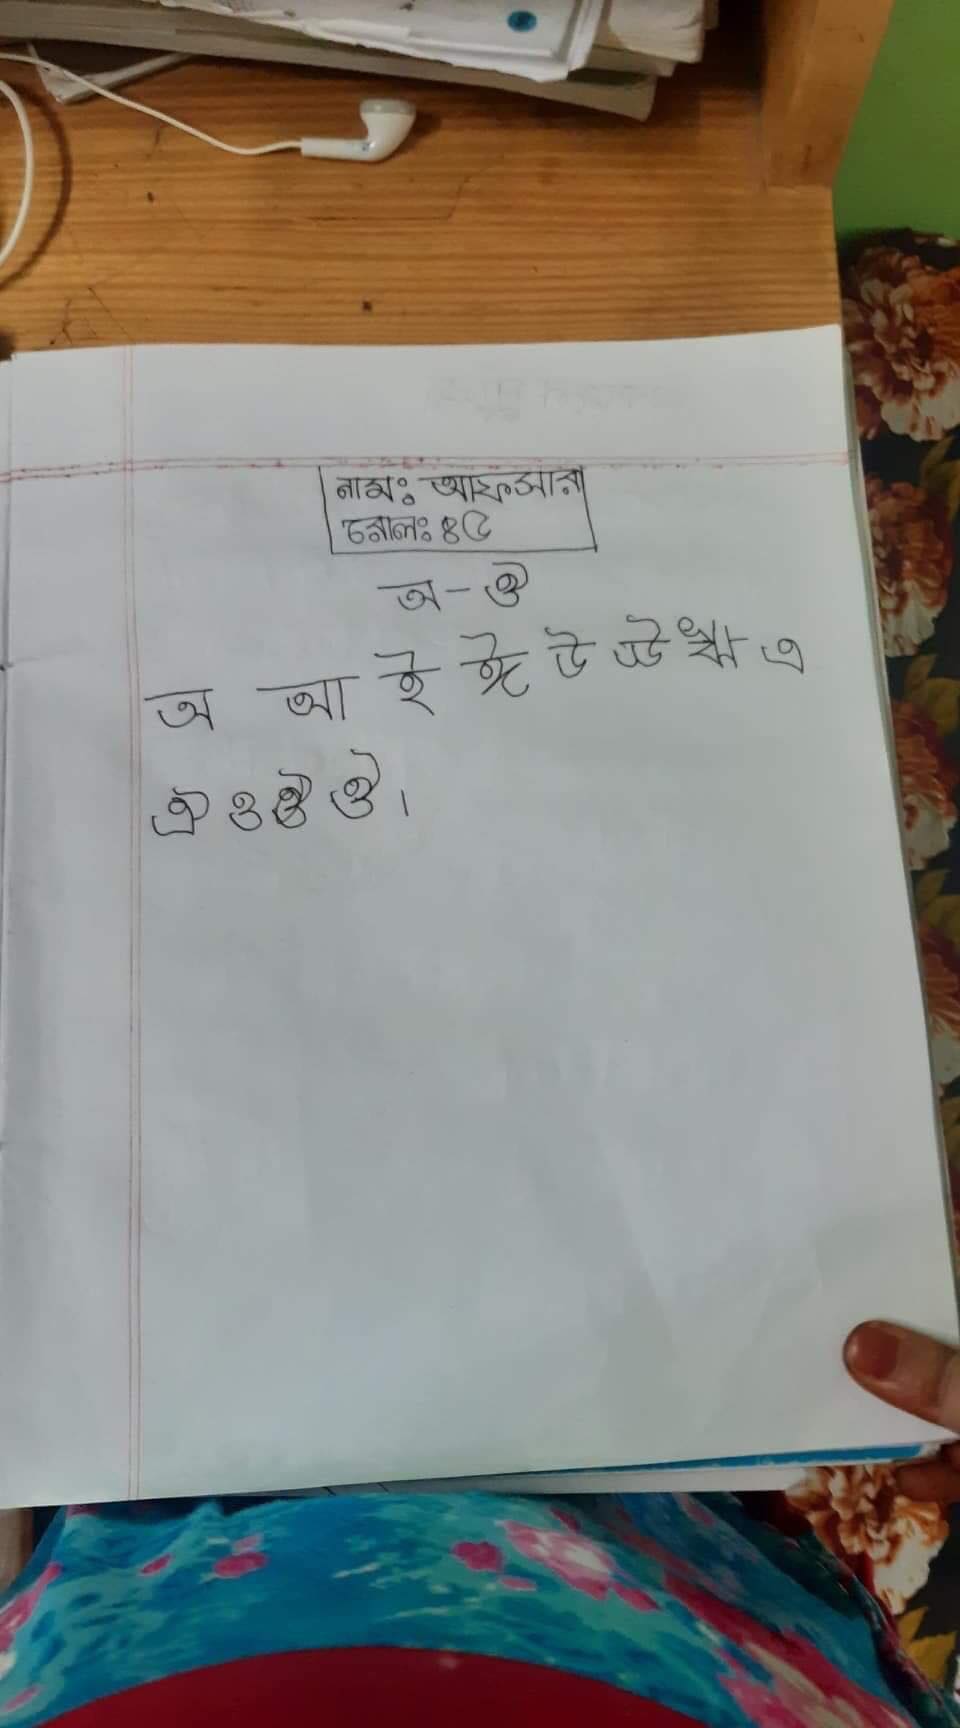 নামঃ আফসার
রোলঃ ৪৫
অ - ঔ
অ আ ই ঈ উ ঊ ঋ এ
ঐ ও ঔ।